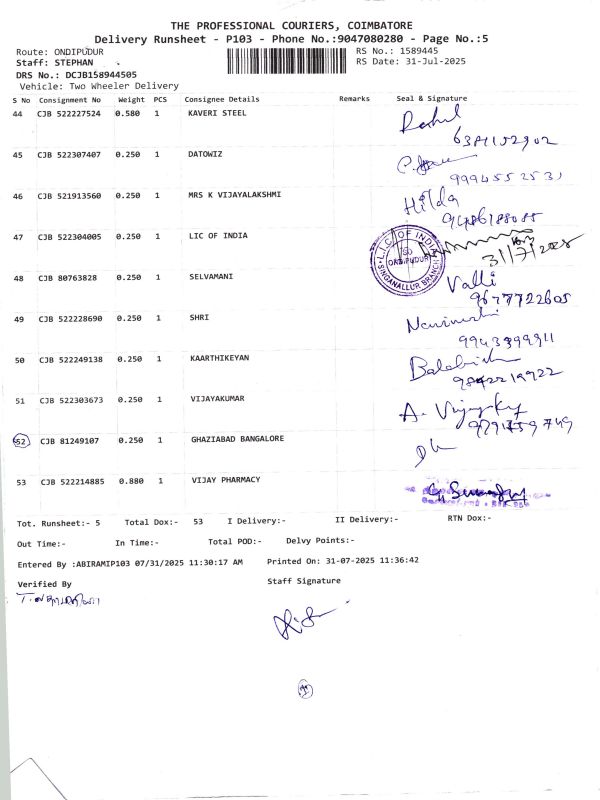 THE PROFESSIONAL COURIERS, COIMBATORE
Delivery Runsheet - P103 - Phone No.:9047080280 - Page No.:5
Route: ONDIPUDUR
RS No.: 1589445
Staff: STEPHAN
RS Date: 31-Jul-2025
DRS No.: DCJB158944505
Vehicle: Two Wheeler Delivery
S No Consignment No Weight PCS Consignee Details Remarks Seal & Signature
44 CJB 522227524 0.580 1 KAVERI STEEL Rahul
6381152902
45 CJB 522307407 0.250 1 DATOWIZ
9994552531
46 CJB 521913560 0.250 1 MRS K VIJAYALAKSHMI Hilda
9486188085
47 CJB 522304005 0.250 1 LIC OF INDIA L.I.C OF INDIA SO ONDIPUDUR SINGANALLUR BRANCH
31/7/2025
48 CJB 80763828 0.250 1 SELVAMANI Valli
9677722605
49 CJB 522228690 0.250 1 SHRI
9943399911
50 CJB 522249138 0.250 1 KAARTHIKEYAN
9842219922
51 CJB 522303673 0.250 1 VIJAYAKUMAR A.
9791759749
52 CJB 81249107 0.250 1 GHAZIABAD BANGALORE
53 CJB 522214885 0.880 1 VIJAY PHARMACY
Tot. Runsheet:- 5 Total Dox:- 53 I Delivery:- II Delivery:- RTN Dox:-
Out Time:- In Time:- Total POD:- Delvy Points:-
Entered By :ABIRAMIP103 07/31/2025 11:30:17 AM Printed On: 31-07-2025 11:36:42
Verified By Staff Signature